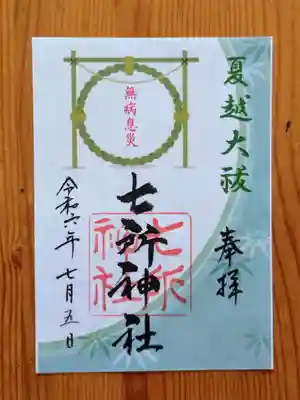 夏越大祓
奉拝
無病息災
七所神社
七所
神社
令和六年 七月五日